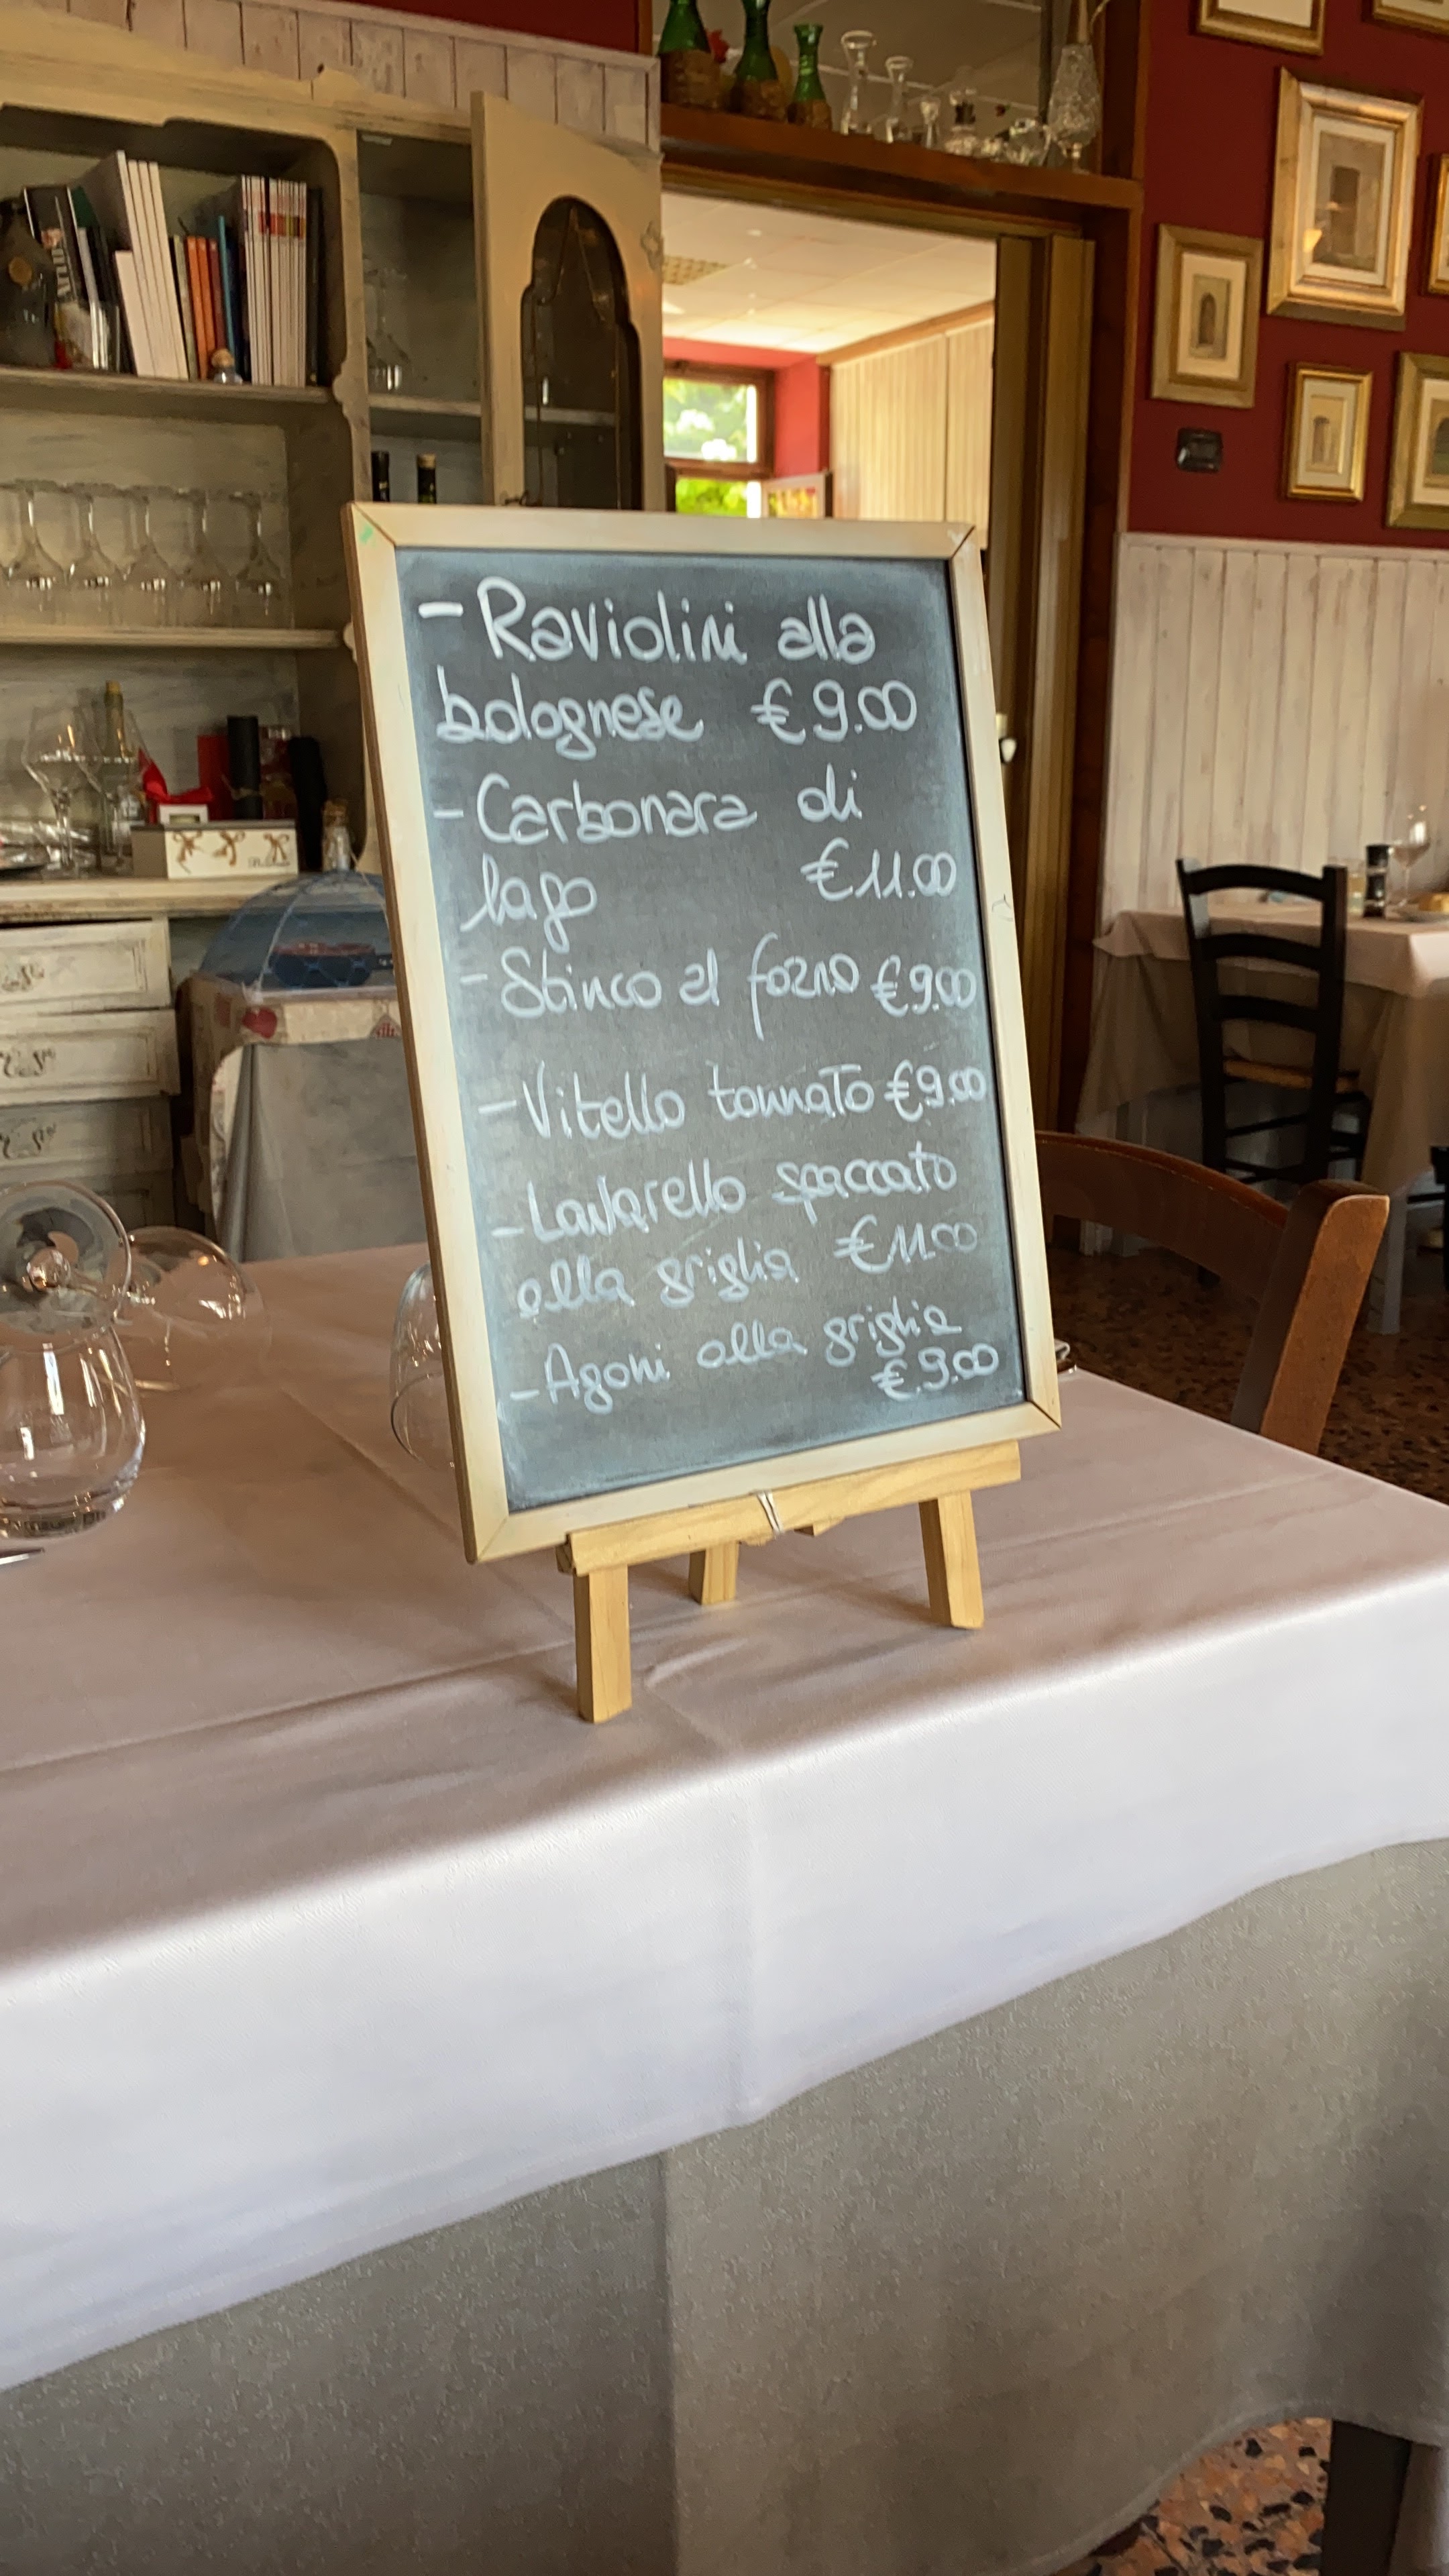 - Raviolini alla
bolognese €9.00
- Carbonara di
lago €11.00
- Stinco al forno €9.00
- Vitello tonnato €9.00
- Lavarello spaccato
alla griglia €11.00
- Agoni alla griglia
€.9.00